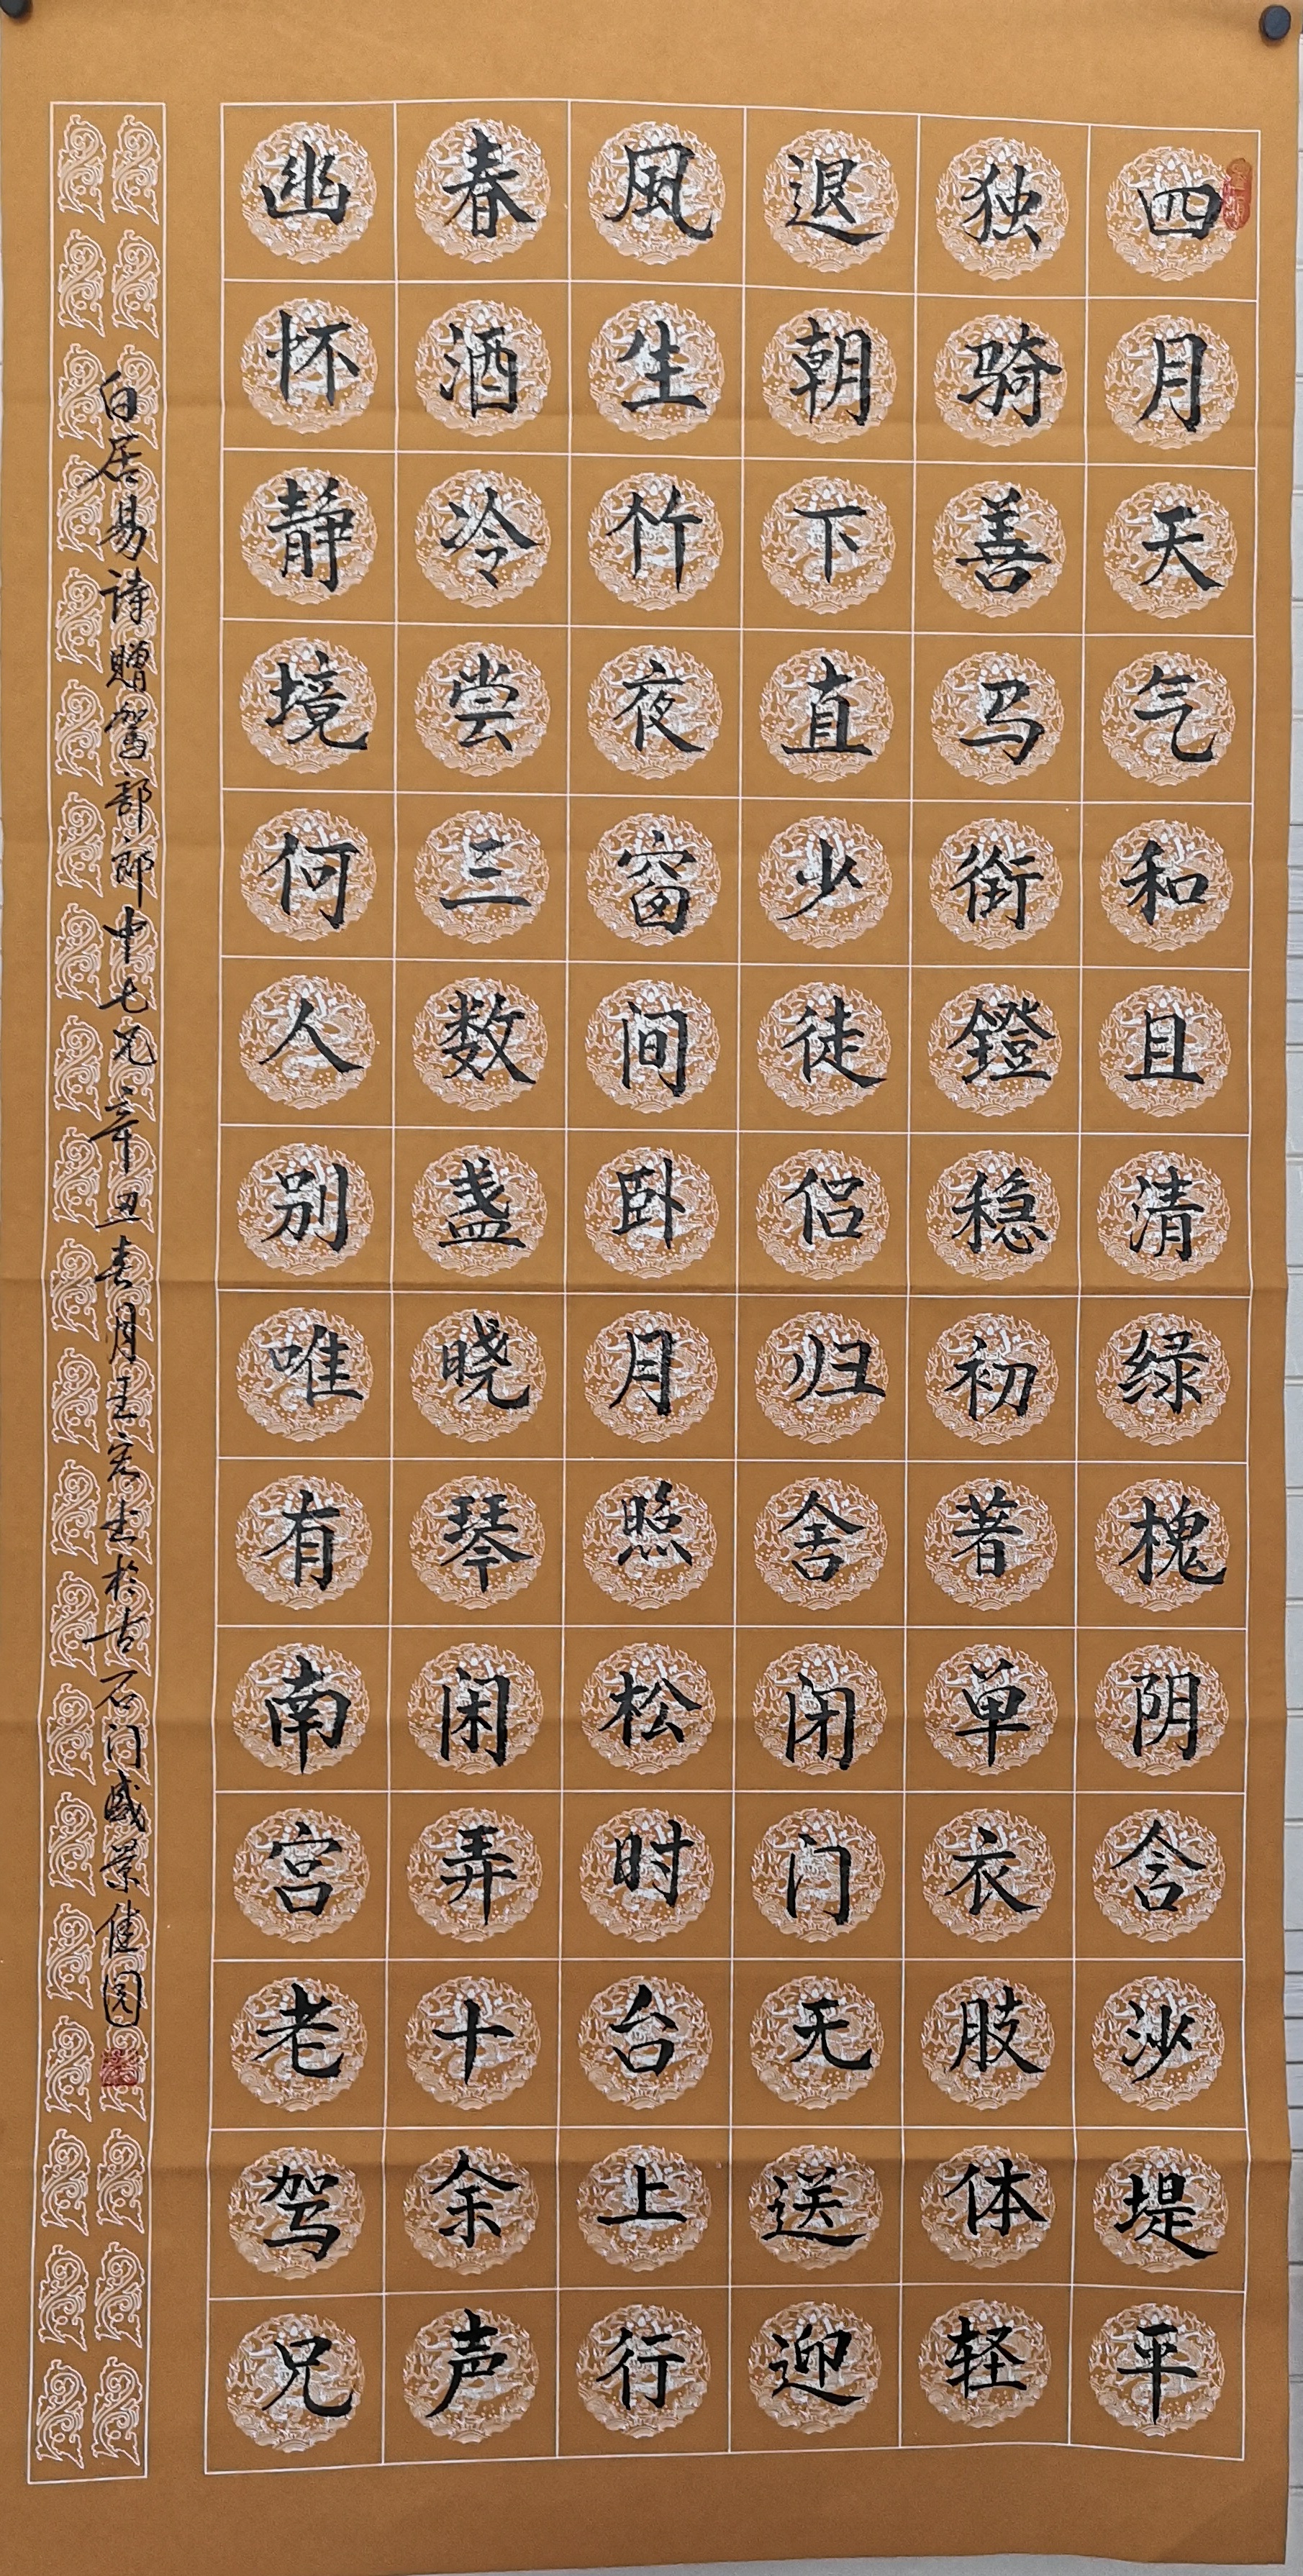 四月天气和且清绿槐阴合沙堤平
独骑善马衔鐙稳初著单衣肢体轻
退朝下直少徒侣归舍闭门无送迎
风生竹夜窗间卧月照松时台上行
春酒冷尝三数盏晓琴闲弄十余声
幽怀静境何人别唯有南宫老驾兄
白居易诗贈驾部郎中七兄辛丑春月王宏书於古石门盛景佳园